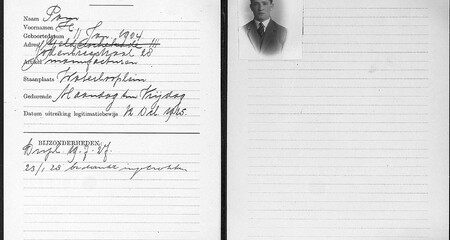 Naam Pam
Voornamen H.
Geboortedatum 11 Jan 1904
Adres
28
Artikel manufacturen
Staanplaats Waterlooplein
Gedurende Maandag t/m Vrijdag
Datum uitreiking legitimatiebewijs 12 Dec 1925.
BIJZONDERHEDEN:
19.7.27.
23/1 28 ingetrokken